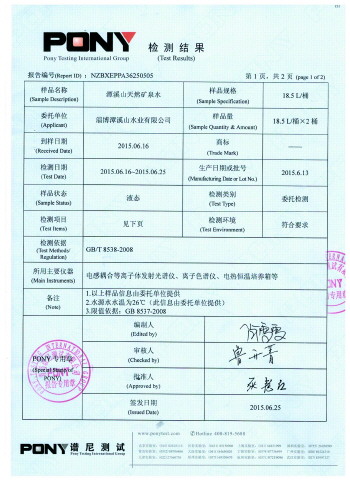 PONY
Pony Testing International Group
检 测 结 果
(Test Results)
报告编号(Report ID) : NZBXEPPA36250505
第 1 页，共 2 页 (page 1 of 2)
样品名称
(Sample Description)
潭溪山天然矿泉水
样品规格
(Sample Specification)
18.5 L/桶
委托单位
(Applicant)
淄博潭溪山水业有限公司
样品量
(Sample Quantity & Amount)
18.5 L/桶×2 桶
到样日期
(Received Date)
2015.06.16
商标
(Trade Mark)
——
检测日期
(Test Date)
2015.06.16~2015.06.25
生产日期或批号
(Manufacturing Date or Lot No.)
2015.6.13
样品状态
(Sample Status)
液态
检测类别
(Test Type)
委托检测
检测项目
(Test Items)
见下页
检测环境
(Test Environment)
符合要求
检测依据
(Test Methods/
Regulation)
GB/T 8538-2008
所用主要仪器
(Main Instruments)
电感耦合等离子体发射光谱仪、离子色谱仪、电热恒温培养箱等
备注
(Note)
1.以上样品信息由委托单位提供
2.水源水水温为26℃（此信息由委托单位提供）
3.限值依据：GB 8537-2008
PONY 专用章
(Special Stamp of
PONY)
编制人
(Edited by)
审核人
(Checked by)
批准人
(Approved by)
签发日期
(Issued Date)
2015.06.25
PONY 谱尼测试
Pony Testing International Group
www.ponytest.com
Hotline 400-819-5688